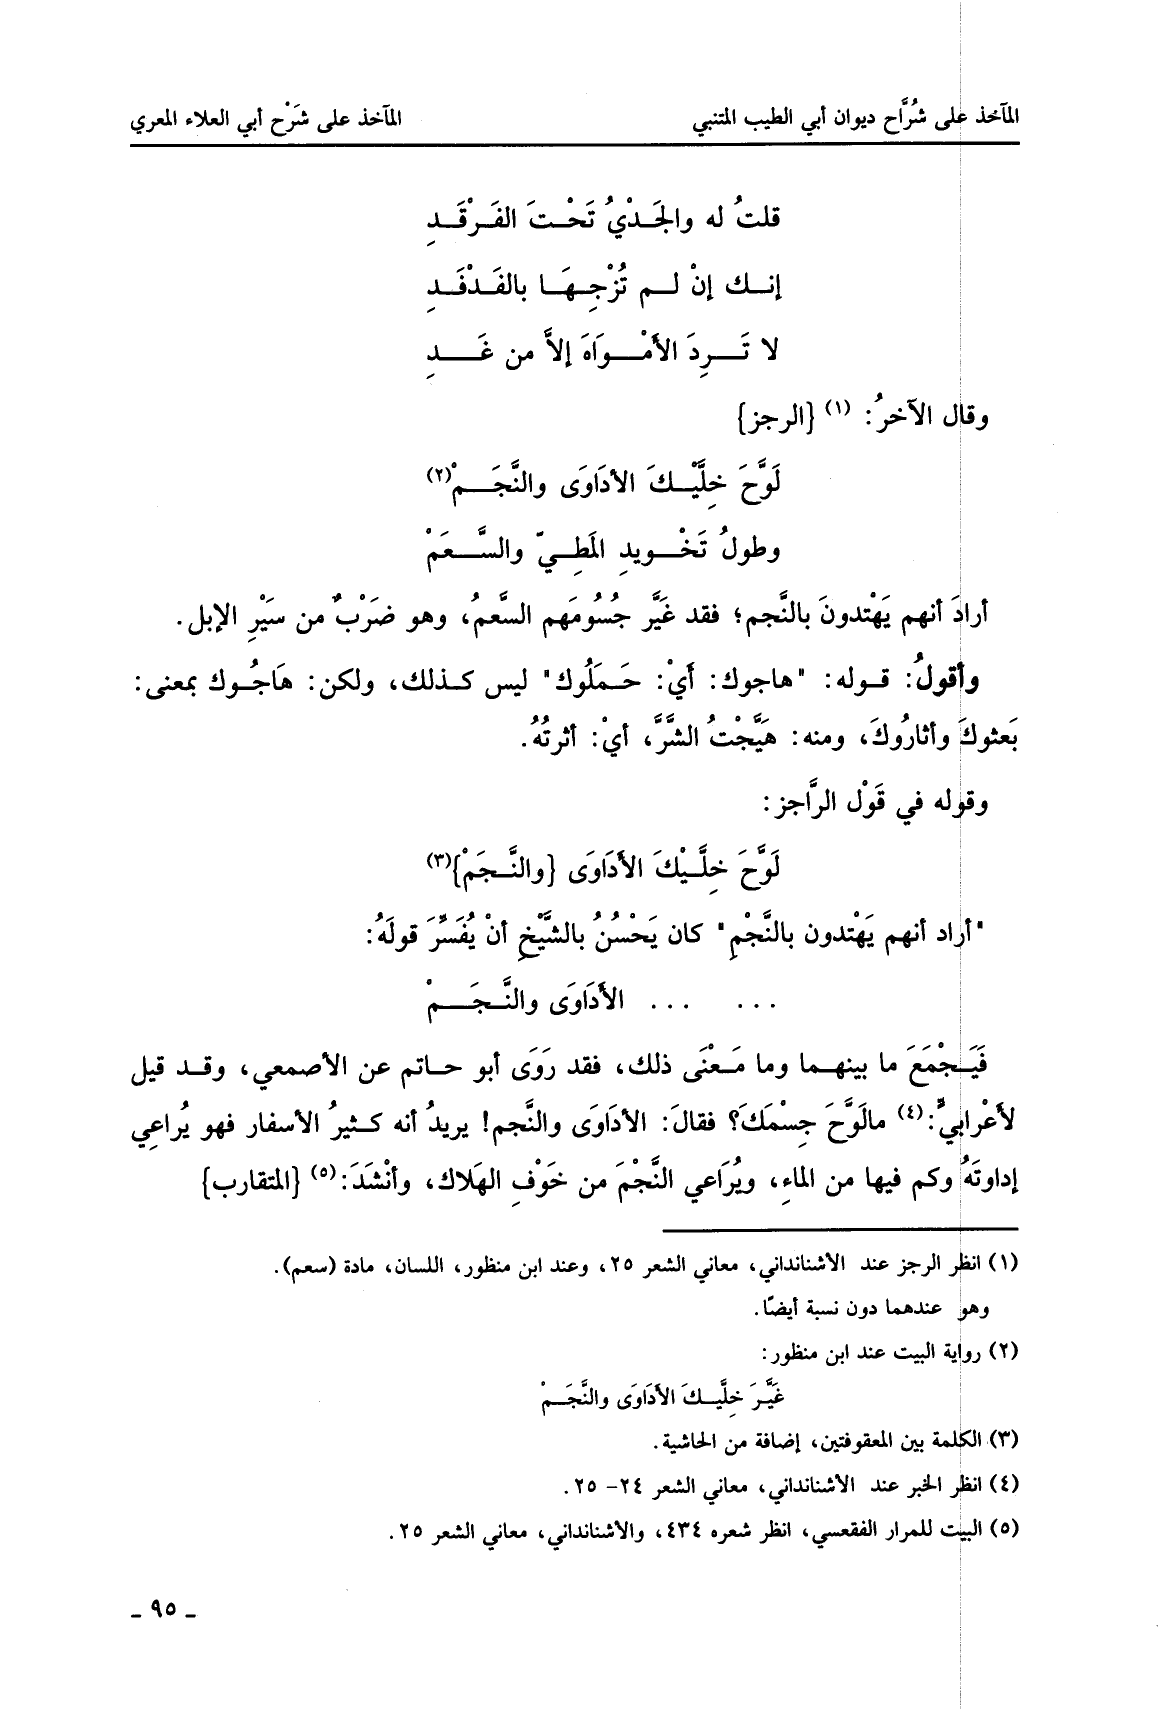 المآخذ على شُرَّاح ديوان أبي الطيب المتنبي
المآخذ على شَرْح أبي العلاء المعري
قلتُ له والجَـدْيُ تَحْـتَ الفَـرْقَـدِ
إنـك إنْ لـم تُزْجِـهَـا بالفَـدْفَـدِ
لا تَـــرِدَ الأَمْـــوَاهَ إلاَّ من غَـــدِ
وقال الآخرُ: (١) {الرجز}
لَوَّحَ خِلَّيْـكَ الأدَاوَى والنَّجَـــمْ(٢)
وطولُ تَخْـــويدِ المَطِـيّ والسَّـــعَمْ
أرادَ أنهم يَهْتدونَ بالنَّجم؛ فقد غَيَّر جُسُومَهم السَّعمُ، وهو ضَرْبٌ من سَيْرِ الإبل.
وأقولُ: قـوله: "هاجوك: أَيْ: حَـملُوك" ليس كـذلك، ولكن: هَاجُـوك بمعنى:
بَعثوكَ وأثارُوكَ، ومنه: هَيَّجْتُ الشَّرَّ، أيْ: أثرتُهُ.
وقوله في قَوْل الرَّاجز:
لَوَّحَ خِلَّـيْكَ الأدَاوَى {والنَّـجَمْ}(٣)
"أراد أنهم يَهْتدون بالنَّجْمِ" كان يَحْسُنُ بالشَّيْخِ أنْ يُفَسِّرَ قولَهُ:
... ... الأَدَاوَى والنَّـجَـــمْ
فَيَـجْمَعَ ما بينهـما وما مَـعْنَى ذلك، فقد رَوَى أبو حـاتم عن الأصمعي، وقـد قيل
لأعْرابيٍّ: (٤) مالَوَّحَ جِسْمَكَ؟ فقالَ: الأدَاوَى والنَّجم! يريدُ أنه كـثيرُ الأسفار فهو يُراعي
إداوتَهُ وكم فيها من الماءِ، ويُرَاعي النَّجْمَ من خَوْفِ الهَلاك، وأنْشَدَ: (٥) {المتقارب}
(١) انظر الرجز عند الأشنانداني، معاني الشعر ٢٥، وعند ابن منظور، اللسان، مادة (سعم).
وهو عندهما دون نسبة أيضًا.
(٢) رواية البيت عند ابن منظور:
غَيَّـرَ خِلَّيْـكَ الأدَاوَى والنَّجَـــمْ
(٣) الكلمة بين المعقوفتين، إضافة من الحاشية.
(٤) انظر الخبر عند الأشنانداني، معاني الشعر ٢٤- ٢٥.
(٥) البيت للمرار الفقعسي، انظر شعره ٤٣٤، والأشنانداني، معاني الشعر ٢٥.
ـ ٩٥ ـ